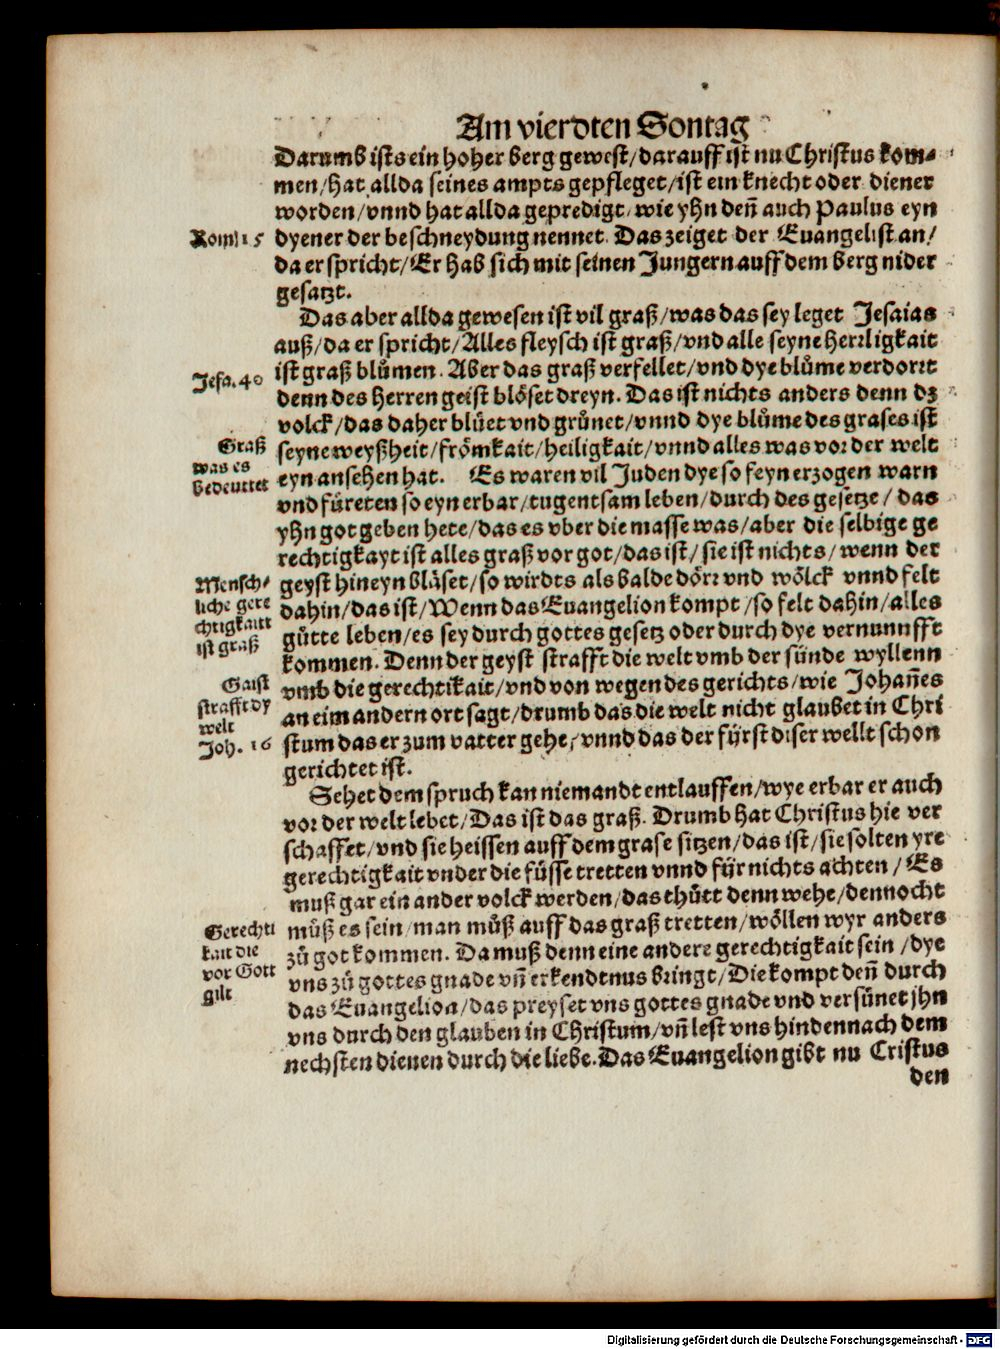 Am vierdten Sontag
Darumb ists ein hoher berg gewest/darauff ist nu Christus kom⸗
men/hat allda seines ampts gepfleget/ist ein knecht oder diener
worden/vnnd hat allda gepredigt/wie yhn deñ auch Paulus eyn
Rom. 15
dyener der beschneydung nennet. Das zeiget der Euangelist an/
da er spricht/Er hab sich mit seinen Jungern auff dem berg nider
gesatzt.
Das aber allda gewesen ist vil graß/was das sey leget Jesaias
auß/da er spricht/Alles fleysch ist graß/vnd alle seyne herrligkait
Jesa. 40
ist graß bluͤmen. Aber das graß verfellet/vnd dye bluͤme verdorrt
denn des herren geist bloͤset dreyn. Das ist nichts anders denn dz
volck/das daher bluͤet vnd gruͤnet/vnnd dye bluͤme des grases ist
Graß
was es
bedeuttet
seyne weyßheit/froͤmkait/heiligkait/vnnd alles was vor der welt
eyn ansehen hat. Es waren vil Juden dye so feyn erzogen warn
vnd fuͤreten so eyn erbar/tugentsam leben/durch des gesetze/das
yhn got geben hete/das es vber die masse was/aber die selbige ge
rechtigkayt ist alles graß vor got/das ist/sie ist nichts/wenn der
Mensch⸗
liche gere
chtigkaitt
ist graß
geyst hineyn blaͤset/so wirdts als balde doͤrr vnd woͤlck vnnd felt
dahin/das ist/Wenn das Euangelion kompt/so felt dahin/alles
guͤtte leben/es sey durch gottes gesetz oder durch dye vernunnfft
kommen. Denn der geyst strafft die welt vmb der suͤnde wyllenn
Gaist
strafft dy
welt
Joh. 16
vmb die gerechtikait/vnd von wegen des gerichts/wie Johañes
an eim andern ort sagt/drumb das die welt nicht glaubet in Chri
stum das er zum vatter gehe/vnnd das der fürst diser wellt schon
gerichtet ist.
Sehet dem spruch kan niemandt entlauffen/wye erbar er auch
vor der welt lebet/Das ist das graß. Drumb hat Christus hie ver
schaffet/vnd sie heissen auff dem grase sitzen/das ist/sie solten yre
gerechtigkait vnder die fuͤsse tretten vnnd für nichts achten/Es
muß gar ein ander volck werden/das thuͤtt denn wehe/dennocht
Gerechti
kait die
vor Gott
gilt
muͤß es sein/man muͤß auff das graß tretten/woͤllen wyr anders
zuͤ got kommen. Da muß denn eine andere gerechtigkait sein/dye
vns zuͤ gottes gnade vñ erkendtnus bringt/Die kompt deñ durch
das Euangelion/das preyset vns gottes gnade vnd versuͤnet jhn
vns durch den glauben in Christum/vñ lest vns hindennach dem
nechsten dienen durch die liebe. Das Euangelion gibt nu Cristus
den
Digitalisierung gefördert durch die Deutsche Forschungsgemeinschaft - DFG